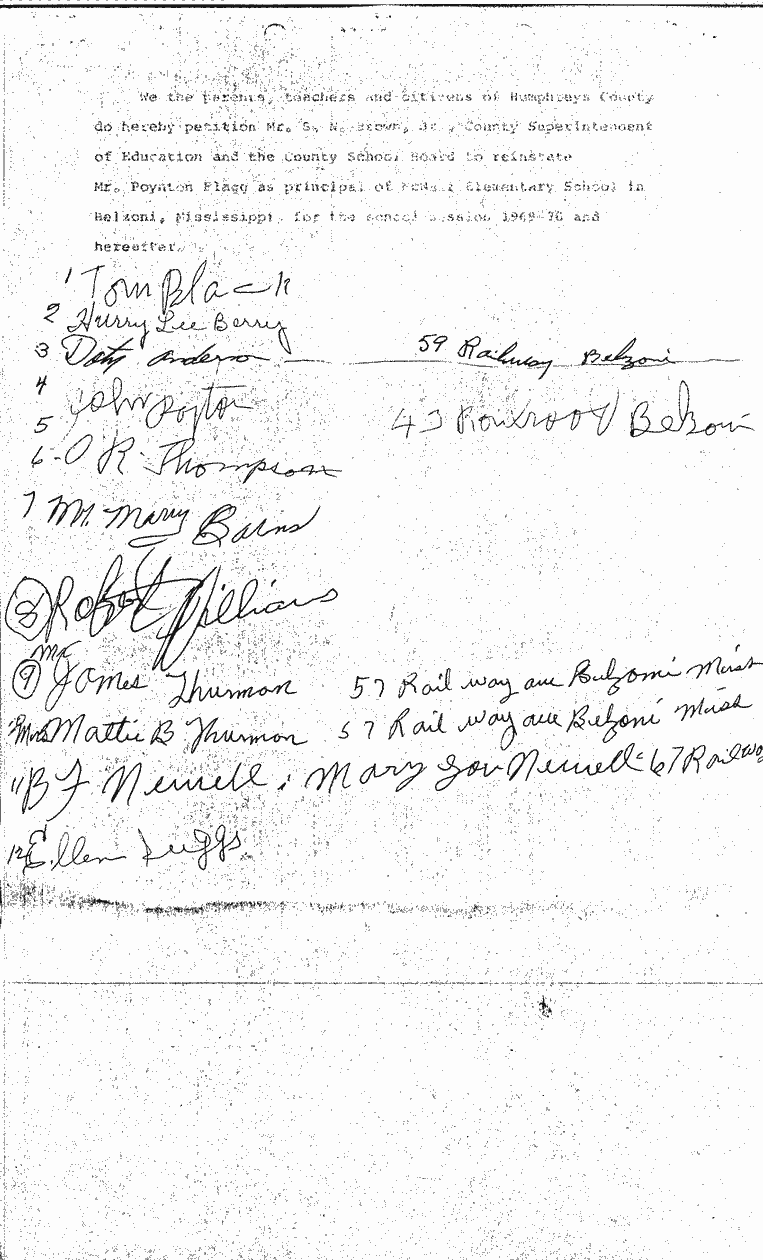 We the parents, teachers and citizens of Humphreys County
do hereby petition Mr. S. N. Brown, Jr., County Superintendent
of Education and the County School Board to reinstate
Mr. Poynton Flagg as principal of Elementary School in
Belzoni, Mississippi for the school session 1969-70 and
hereafter.
1 Tom Black
2 Harry Lee Berry
3 Anderson 59 Railway Belzoni
4
5 John 43 Belzoni
6- O R. Thompson
7 Mr. Mary Barns
8 Robert Williams
Mr
9 James Thurmon 57 Rail way ave Belzoni Miss
Mrs Mattie B Thurmon 57 Rail way ave Belzoni Miss
11 B F Newell; Mary Lou Newell 67 Railway
12 Ellen Suggs.